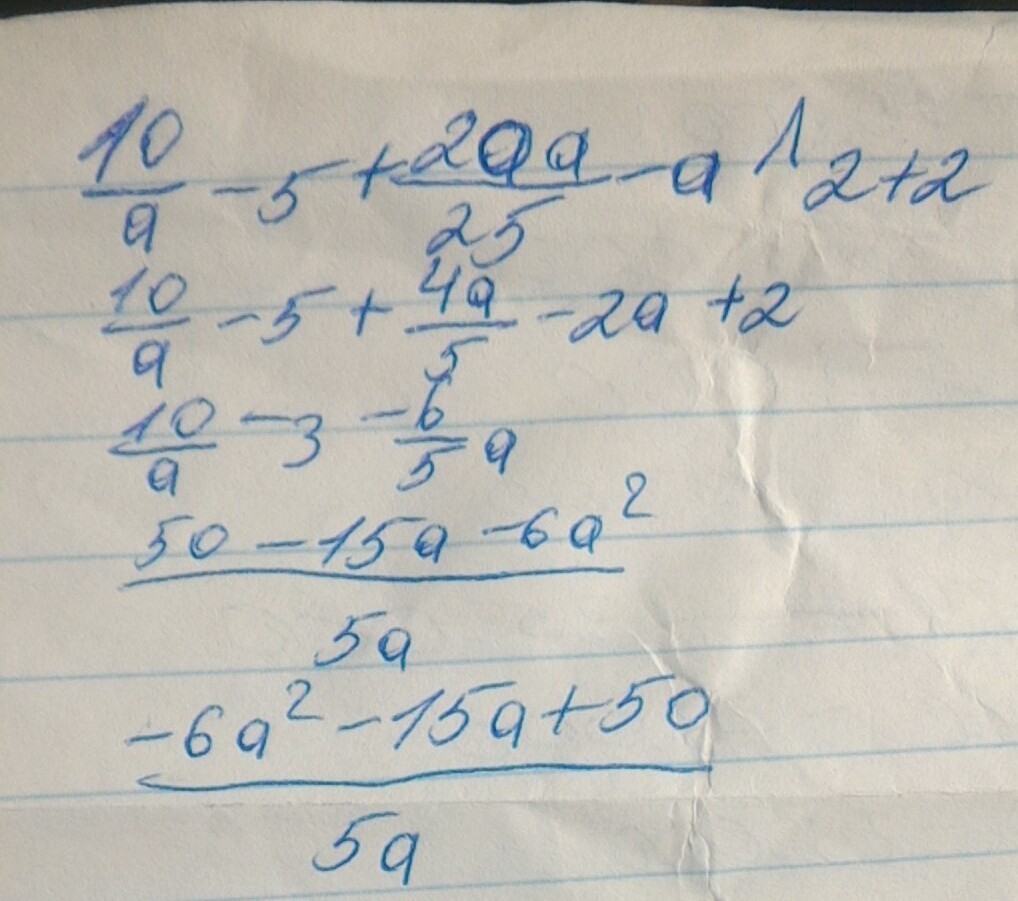 10/a - 5 + 20a/25 - a ^ 2 + 2
10/a - 5 + 4a/5 - 2a + 2
10/a - 3 - 6/5 a
50 - 15a - 6a²
5a
-6a² - 15a + 50
5a